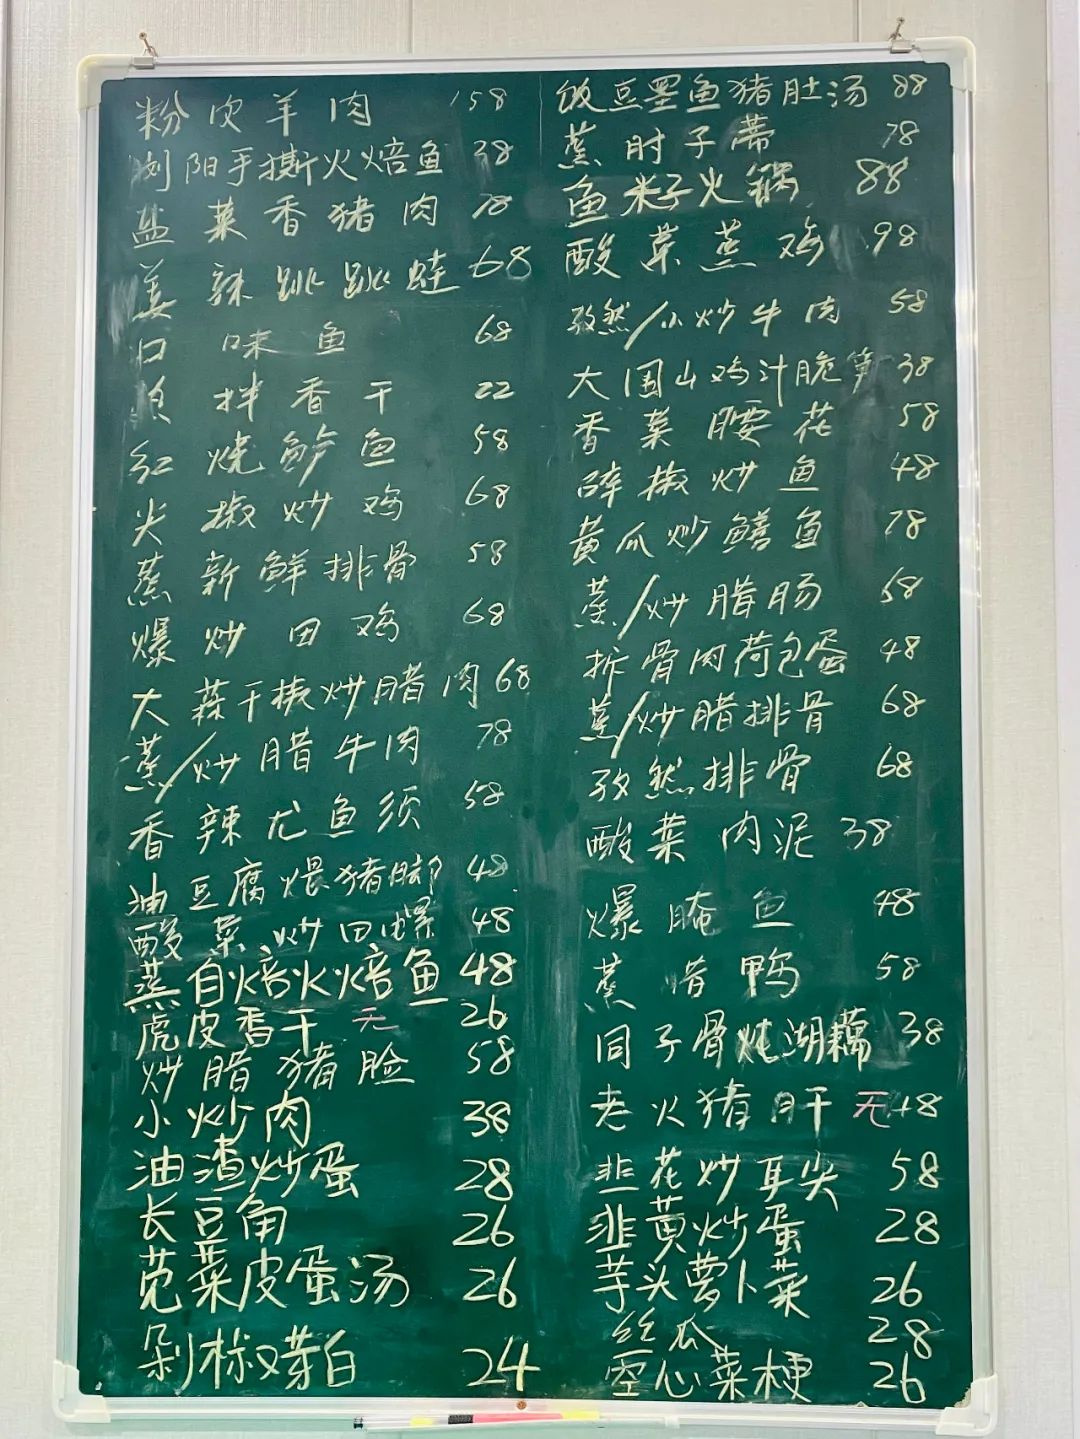 粉皮羊肉 158
浏阳手撕火焙鱼 38
盐菜香猪肉 78
姜辣跳跳蛙 68
口味鱼 68
拌香干 22
红烧鲈鱼 58
尖椒炒鸡 68
蒸新鲜排骨 58
爆炒田鸡 68
大蒜干椒炒腊肉 68
蒸/炒腊牛肉 78
香辣尤鱼须 58
油豆腐煨猪脚 48
酸菜炒田螺 48
蒸自焙火焙鱼 48
虎皮香干 无 26
炒腊猪脸 58
小炒肉 38
油渣炒蛋 28
长豆角 26
苋菜皮蛋汤 26
剁椒芽白 24
饭豆墨鱼猪肚汤 88
蒸肘子蒂 78
鱼籽火锅 88
酸菜蒸鸡 98
孜然/小炒牛肉 58
大围山鸡汁脆笋 38
香菜腰花 58
碎椒炒鱼 48
黄瓜炒鳝鱼 78
蒸/炒腊肠 68
拆骨肉荷包蛋 48
蒸/炒腊排骨 68
孜然排骨 68
酸菜肉泥 38
爆腌鱼 48
蒸腊鸭 58
同子骨炖湖藕 38
老火猪肝 无 48
韭花炒耳尖 58
韭黄炒蛋 28
芋头萝卜菜 26
丝瓜 28
空心菜梗 26